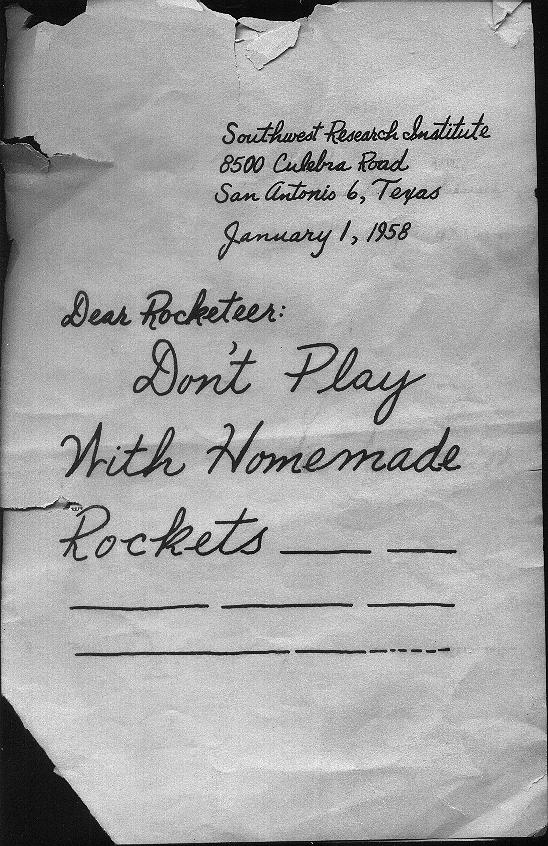 Southwest Research Institute
8500 Culebra Road
San Antonio 6, Texas
January 1, 1958
Dear Rocketeer:
Don't Play
With Homemade
Rockets